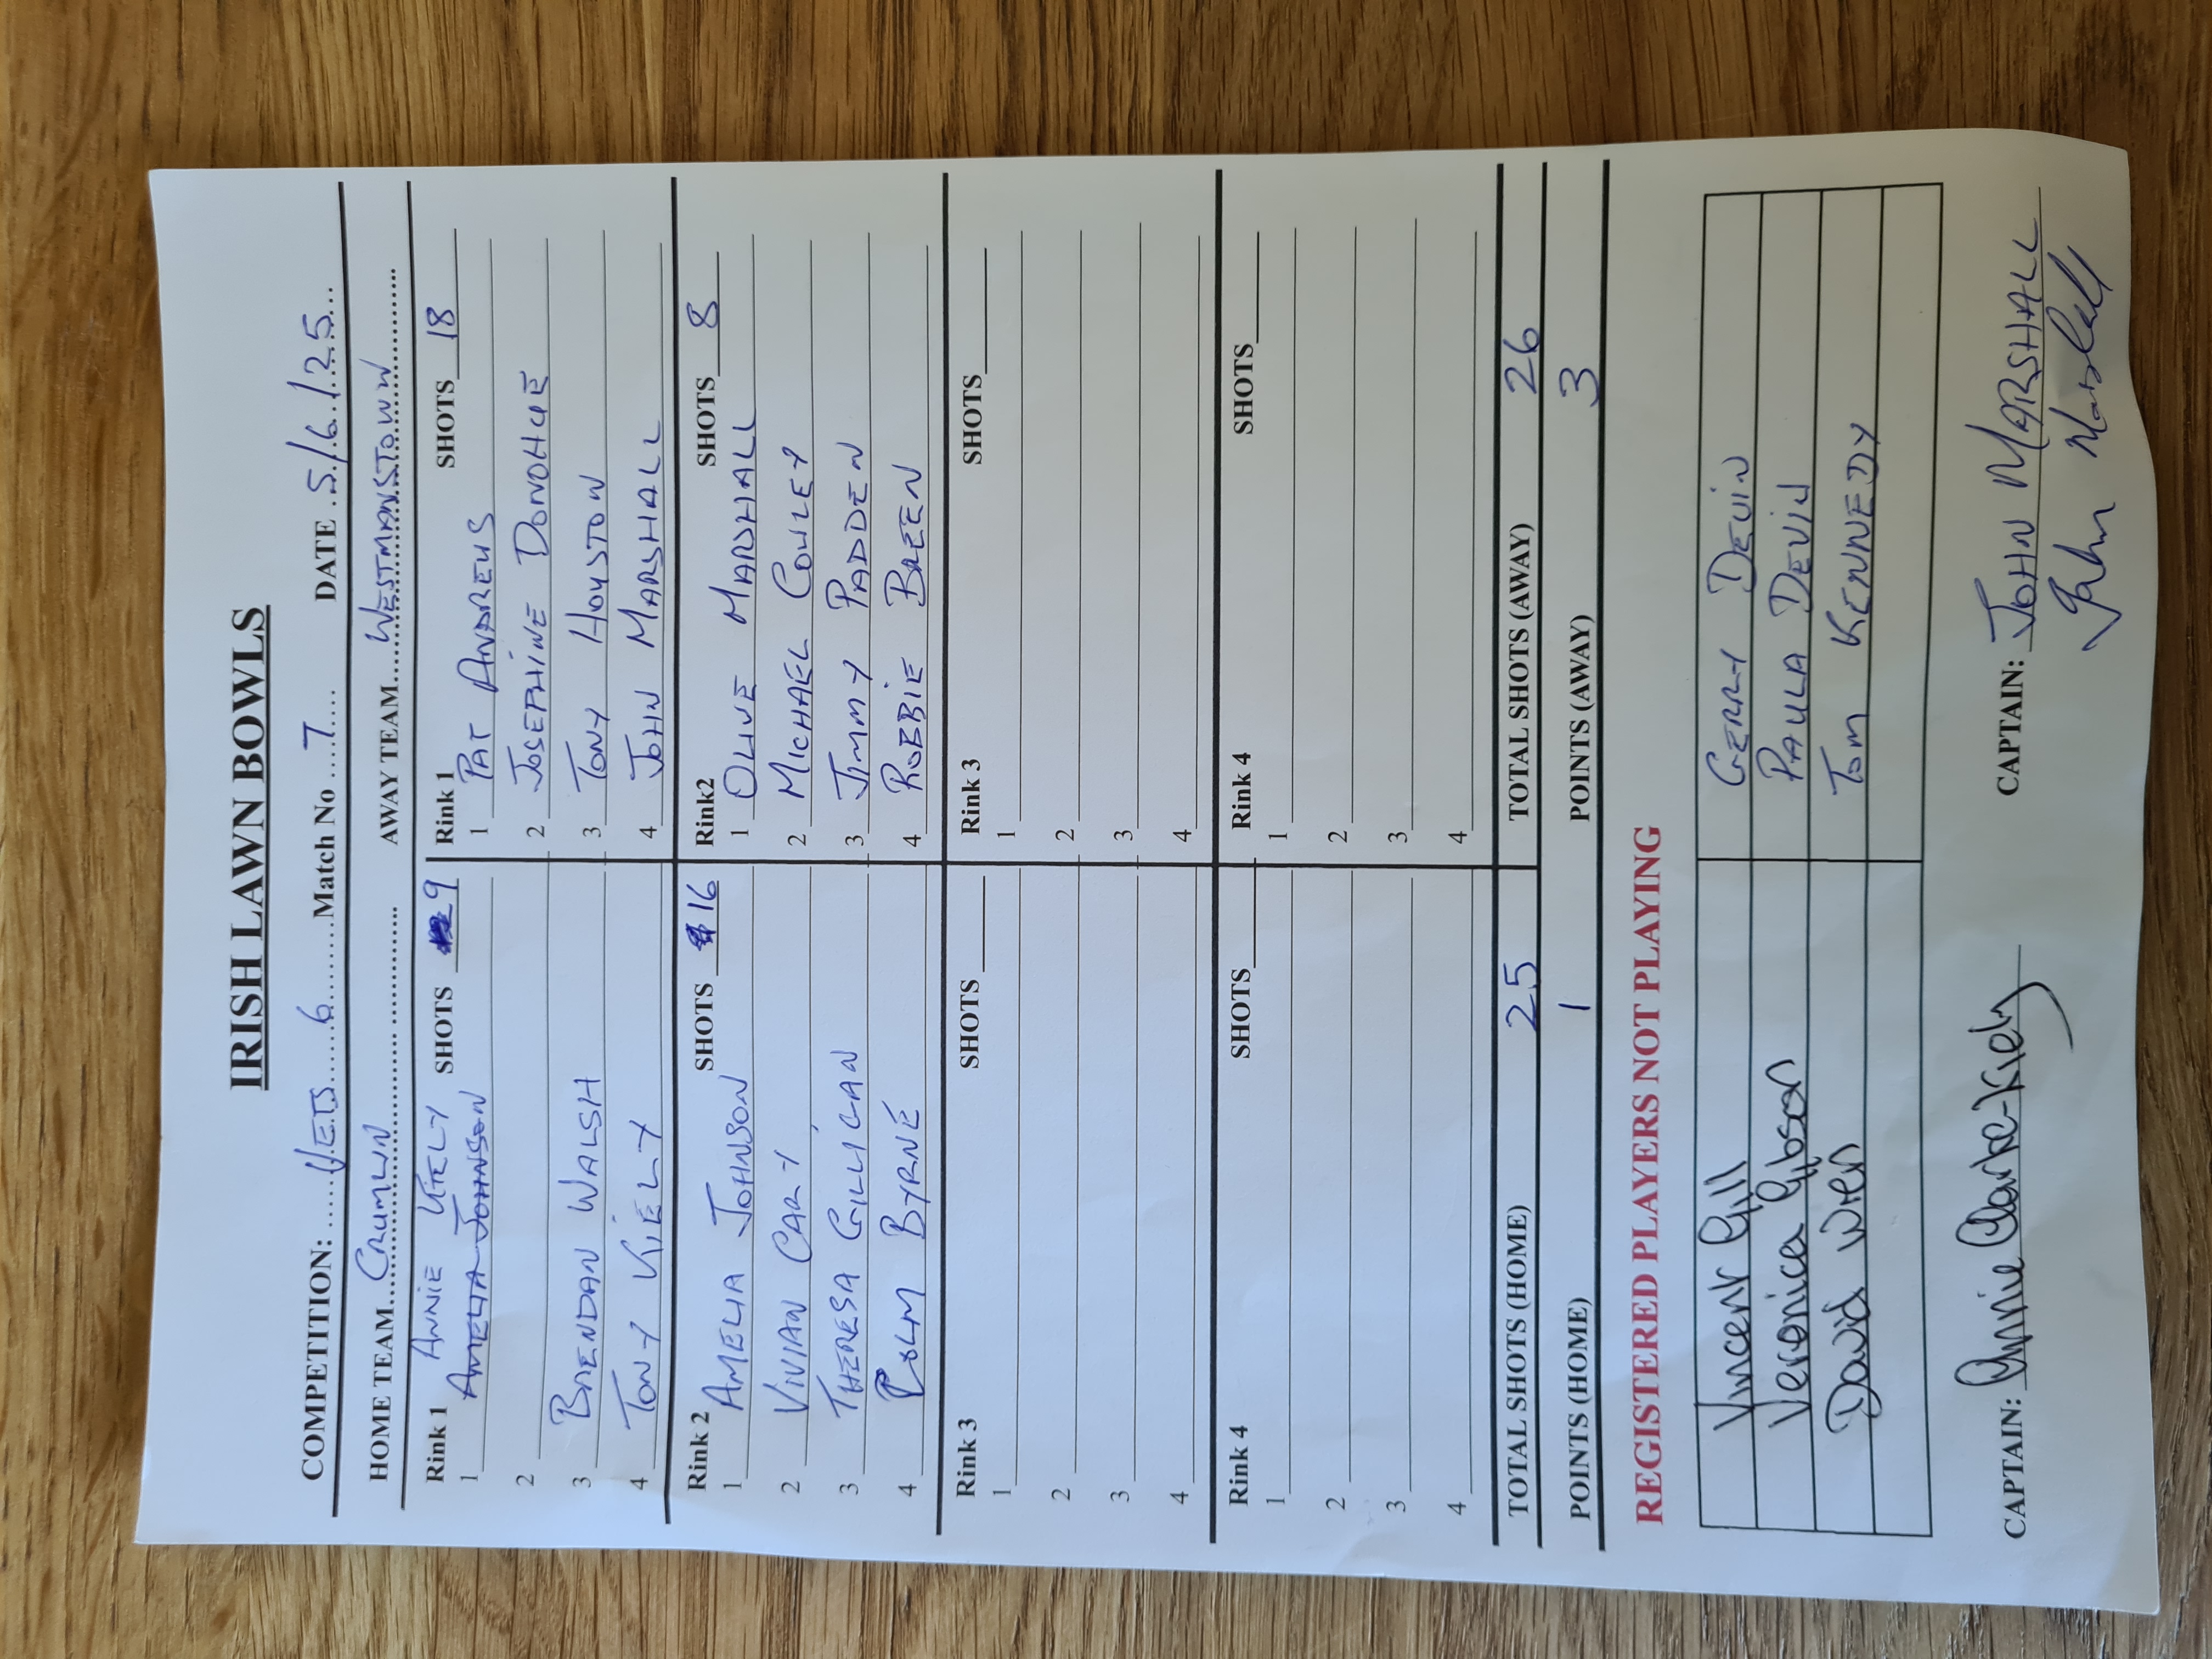 IRISH LAWN BOWLS
COMPETITION: VETS 6 Match No 7 DATE 5/6/25
HOME TEAM CRUMLIN AWAY TEAM WESTMANSTOWN
Rink 1 SHOTS 9 Rink 1 SHOTS 18
ANNIE KIELY
1 AMELIA JOHNSON 1 PAT ANDREWS
2 2 JOSEPHINE DONOHUE
3 BRENDAN WALSH 3 TONY HOUSTON
4 TONY KIELY 4 JOHN MARSHALL
Rink 2 SHOTS 16 Rink2 SHOTS 8
1 AMELIA JOHNSON 1 OLIVE MARSHALL
2 VIVIAN CARTY 2 MICHAEL COWLEY
3 THERESA GILLIGAN 3 JIMMY PADDEN
4 COLM BYRNE 4 ROBBIE BREEN
Rink 3 SHOTS Rink 3 SHOTS
1 1
2 2
3 3
4 4
Rink 4 SHOTS Rink 4 SHOTS
1 1
2 2
3 3
4 4
TOTAL SHOTS (HOME) 25 TOTAL SHOTS (AWAY) 26
POINTS (HOME) 1 POINTS (AWAY) 3
REGISTERED PLAYERS NOT PLAYING
Vincent Gill GERRY DEVIN
Veronica Gibson PAULA DEVIN
David Wren TOM KENNEDY
CAPTAIN: Annie Clarke-Kiely CAPTAIN: JOHN MARSHALL
John Marshall